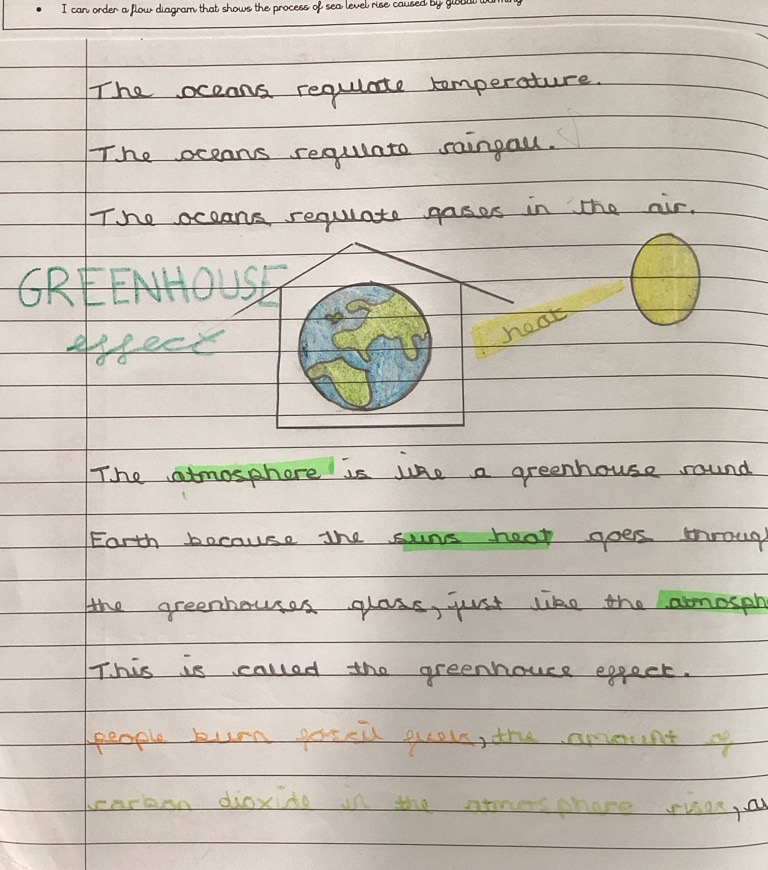 I can order a flow diagram that shows the process of sea level rise caused by global warming
The oceans regulate temperature.
The oceans regulate raingall.
The oceans regulate gases in the air.
GREENHOUSE
effect
heat
The atmosphere is like a greenhouse round
Earth because the suns heat goes through
the greenhouses glass, just like the atmosph
This is called the greenhouce effect.
people burn fossil fuels, the amount of
carbon dioxide in the atmosphere rises,